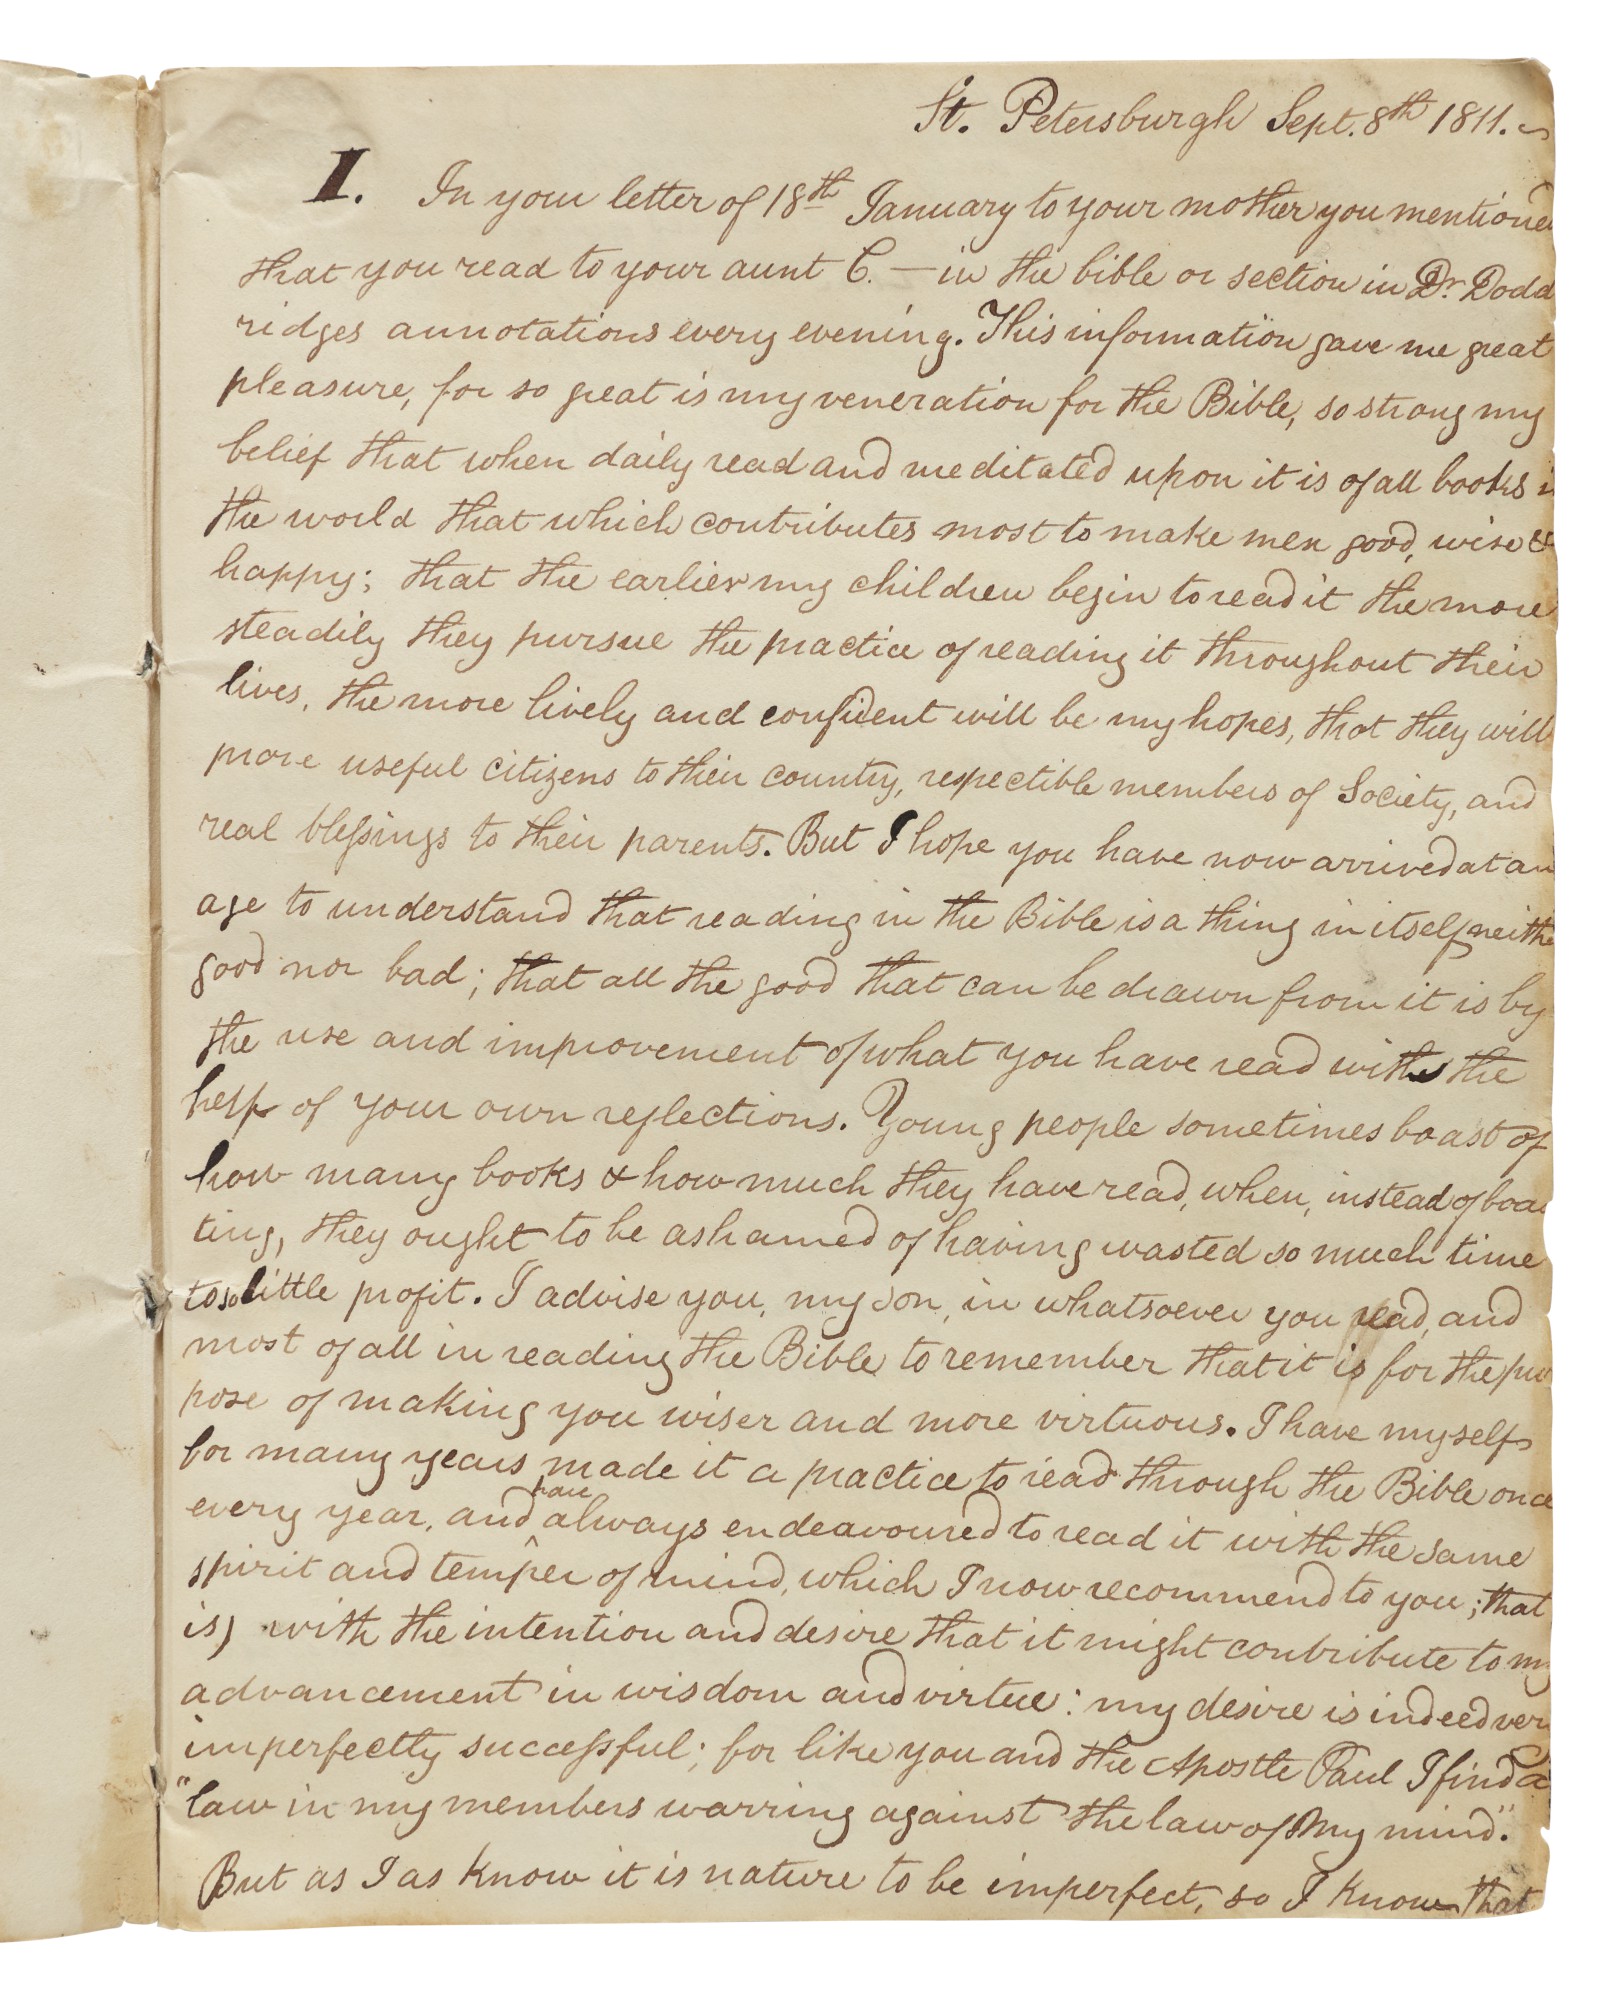 St. Petersburgh Sept. 8th 1811.
I. In your letter of 18th January to your mother you mentioned
that you read to your aunt C. — in the bible or section in Dr. Dodd
ridges annotations every evening. This information gave me great
pleasure, for so great is my veneration for the Bible, so strong my
belief that when daily read and meditated upon it is of all books in
the world that which contributes most to make men good, wise &
happy; that the earlier my children begin to read it the more
steadily they pursue the practice of reading it throughout their
lives, the more lively and confident will be my hopes, that they will
prove useful citizens to their country, respectible members of Society, and
real blessings to their parents. But I hope you have now arrived at an
age to understand that reading in the Bible is a thing in itself neithe
good nor bad; that all the good that can be drawn from it is by
the use and improvement of what you have read with the
help of your own reflections. Young people sometimes boast of
how many books & how much they have read, when, instead of boas
ting, they ought to be ashamed of having wasted so much time
to so little profit. I advise you, my son, in whatsoever you read, and
most of all in reading the Bible to remember that it is for the pur
pose of making you wiser and more virtuous. I have myself
for many years made it a practice to read through the Bible once
every year, and have always endeavoured to read it with the same
spirit and temper of mind, which I now recommend to you; that
is, with the intention and desire that it might contribute to my
advancement in wisdom and virtue: my desire is indeed very
imperfectly successful; for like you and the Apostle Paul I find a
"law in my members warring against the law of my mind."
But as I as know it is nature to be imperfect, so I know that